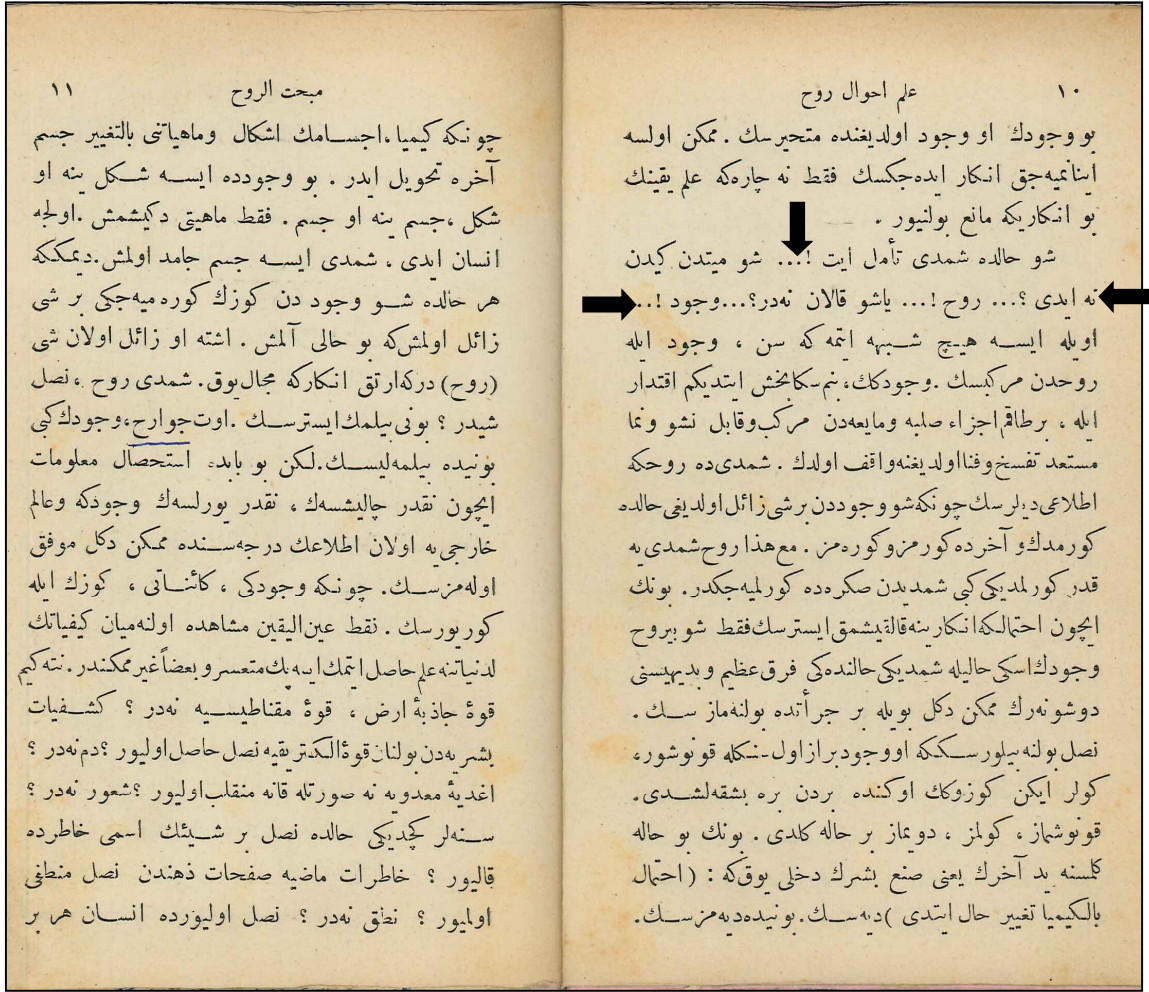 ١٠
علم احوال روح
بو وجودك او وجود اولديغنده متحيرسك . ممكن اولسه
اينانميه‌جق انكار ايده‌جكسك فقط نه چاره‌كه علم يقينك
بو انكاريكه مانع بولنيور .
شو حالده شمدى تأمل ايت !... شو ميتدن كيدن
نه ايدى ؟... روح !... ياشو قالان نه‌در؟...وجود !...
اويله ايسه هيچ شبهه ايتمه كه سن ، وجود ايله
روحدن مركبسك .وجودكك، بنم سكا بخش ايتديكم اقتدار
ايله ، برطاقم اجزاء صلبه ومايعه‌دن مركب وقابل نشو ونما
مستعد تفسخ وفنا اولديغنه واقف اولدك . شمدى‌ده روحكه
اطلاعى ديلرسك چونكه شو وجوددن برشى زائل اولديغى حالده
كورمدك و آخرده كورمز وكوره‌مز . مع هذا روح شمدى‌يه
قدر كورلمديكى كبى شمديدن صكره‌ده كورلميه‌جكدر. بونك
ايچون احتمالكه انكارينه قالقيشمق ايسترسك فقط شو بيروح
وجودك اسكى حاليله شمديكى حالنده‌كى فرق عظيم وبديهيسنى
دوشونه‌رك ممكن دكل بويله بر جرأتده بولنه‌ماز سك .
نصل بولنه بيلورسككه او وجود براز اول شكله قونوشور،
كولر ايكن كوزوكك اوكنده بردن بره بشقه‌لشدى.
قونوشماز ، كولمز ، دويماز بر حاله كلدى . بونك بو حاله
كلمسنه يد آخرك يعنى صنع بشرك دخلى يوق‌كه : ( احتمال
بالكيميا تغيير حال ايتدى )ديه‌سك.بونيده‌ديه‌مزسك.
١١
مبحث الروح
چونكه كيميا،اجسامك اشكال وماهياتنى بالتغيير جسم
آخره تحويل ايدر . بو وجودده ايسه شكل ينه او
شكل ،جسم ينه او جسم . فقط ماهيتى دكيشمش .اولجه
انسان ايدى ، شمدى ايسه جسم جامد اولمش.ديمككه
هر حالده شو وجود دن كوزك كوره‌ميه‌جكى بر شى
زائل اولمش‌كه بو حالى آلمش . اشته او زائل اولان شى
(روح) دركه‌ارتق انكاركه مجال‌يوق. شمدى روح ،نصل
شيدر ؟ بونى بيلمك ايسترسك .اوت جوارح،وجودك كبى
بونيده بيلمه‌ليسك.لكن بو بابده استحصال معلومات
ايچون نقدر چاليشسه‌ك ، نقدر يورلسه‌ك وجودكه وعالم
خارجى‌يه اولان اطلاعك درجه‌سنده ممكن دكل موفق
اوله‌مزسك. چونكه وجودكى ، كائناتى ، كوزك ايله
كوريورسك . نقط عين‌اليقين مشاهده اولنه‌ميان كيفياتك
لدنياتنه علم حاصل ايتمك ايسه پك متعسر و بعضاً غير ممكندر . نته‌كيم
قوۀ جاذبۀ ارض ، قوۀ مقناطيسيه نه‌در ؟ كشفيات
بشريه‌دن بولنان قوۀ الكتريقيه نصل حاصل اوليور ؟دم نه‌در ؟
اغديۀ معدويه نه صورتله قانه منقلب اوليور ؟شعور نه‌در ؟
سنه‌لر كچديكى حالده نصل بر شيئك اسمى خاطرده
قاليور ؟ خاطرات ماضيه صفحات ذهندن نصل منطفى
اولميور ؟ نطق نه‌در ؟ نصل اوليورده انسان هر بر